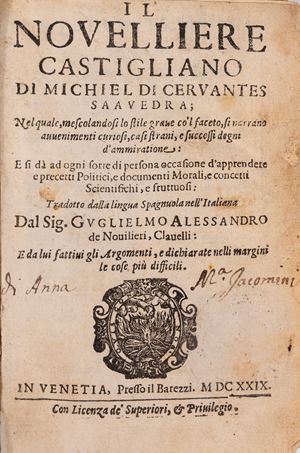 IL
NOVELLIERE
CASTIGLIANO
DI MICHIEL DI CERVANTES
SAAVEDRA;
Nel quale, mescolandosi lo stile graue co'l faceto, si narrano
auuenimenti curiosi, casi strani, e successi degni
d'ammiratione:
E si dà ad ogni sorte di persona occasione d'apprendere
e precetti Politici, e documenti Morali, e concetti
Scientifichi, e fruttuosi:
Tradotto dalla lingua Spagnuola nell'Italiana
Dal Sig. GVGLIELMO ALESSANDRO
de Nouilieri, Clauelli:
E da lui fattiui gli Argomenti, e dichiarate nelli margini
le cose più difficili.
di Anna
Mª Jacomini
IN VENETIA, Presso il Barezzi. MDCXXIX.
Con Licenza de' Superiori, & Priuilegio.